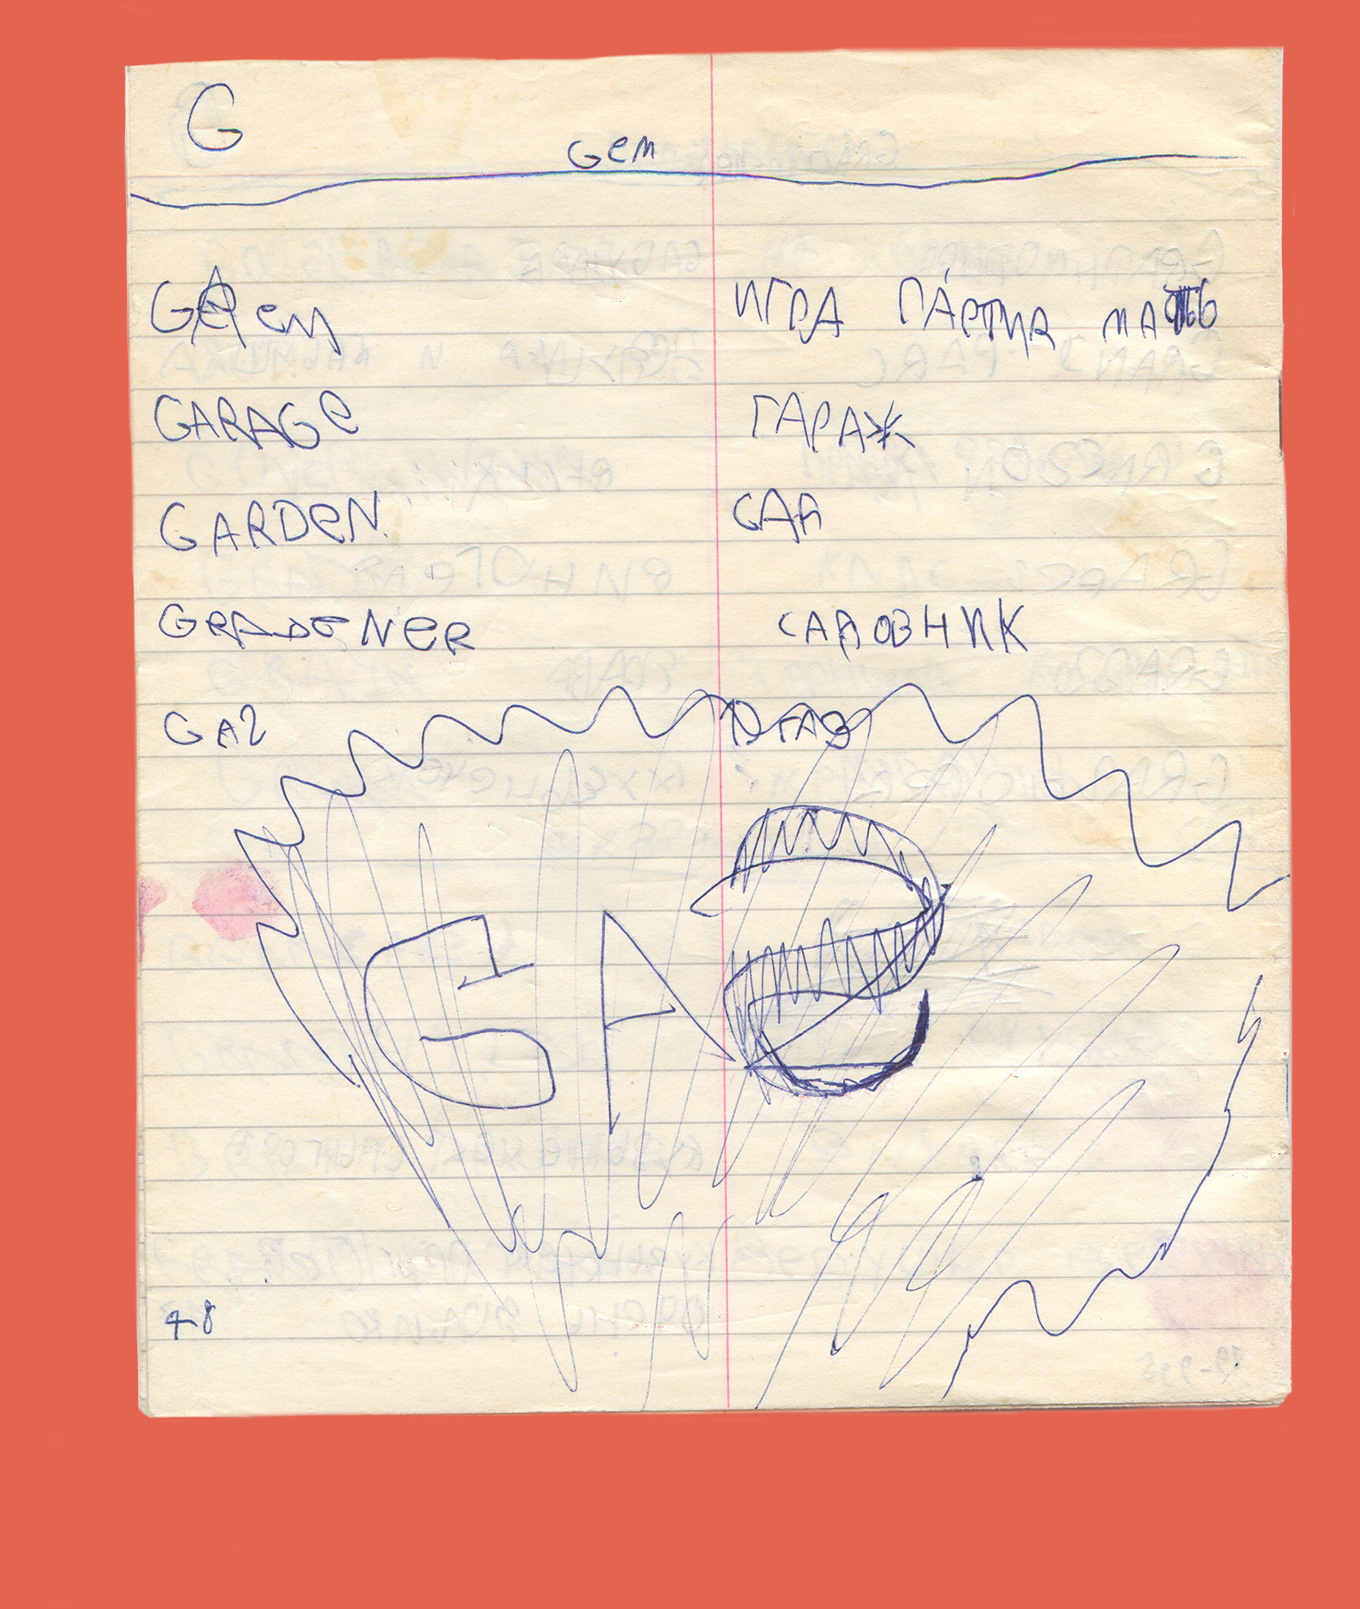 G
Gem
GAem ИГРА ПА́РТИЯ МАТЬ
GARAGe ГАРАЖ
GARDeN САД
GRADENeR САДОВНИК
GAZ ГАЗ
GAZ
48